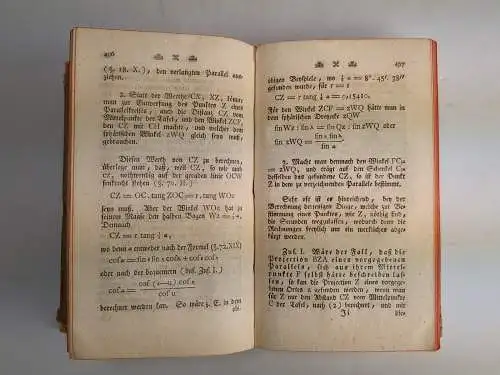 496
(§. 18. X.), den verlangten Parallel
ziehen.
2. Statt der Werthe CX, XZ, könnte
man zur Entwerfung des Punktes Z eines
Parallelkreises, auch die Distanz CZ vom
Mittelpunkte der Tafel, und den Winkel ZCF,
den CZ mit CH macht, und welchem der
sphärischen Winkel zWQ gleich seyn muß,
berechnen.
Diesen Werth von CZ zu berechnen,
überlege man, daß, weil CZ, so wie
auch cz, nothwendig auf der geraden Linie OCW
senkrecht stehen (§. 70. II.)
CZ = OC. tang ZOC = r. tang WOz
seyn muß. Aber der Winkel WOz hat zu
seinem Maaße den halben Bogen Wz = ½ a.
Demnach
CZ = r tang ½ a,
wo denn a entweder nach der Formel (§. 72. XIX)
cos a = sin k sin λ + cos k cos λ
oder nach der bequemern (das. Zus. I.)
cos a = cos (λ—u) cos k
cos u
berechnet werden kan. So wäre z. E. in dem
obi-
497
obigen Beyspiele, wo ½ a = 8°. 45'. 38"
gefunden wurde, für r = 1
CZ = r tang ½ a = 0,15410.
Für den Winkel ZCF = zWQ hätte man in
dem sphärischen Dreyecke zQW
sin Wz : sin λ = sin Qz : sin zWQ
sin a : sin λ = sin k : sin zWQ oder
sin zWQ = sin λ sin k
sin a
3. Macht man demnach den Winkel FCz
= zWQ, und trägt auf den Schenkel Cz
desselben das gefundene CZ, so ist der Punkt
Z in dem zu verzeichnenden Parallele bestimmt.
Sehr oft ist es hinreichend, bey der
Berechnung derjenigen Dinge, welche zur Be-
stimmung eines Punktes, wie Z, nöthig sind,
die Secunden wegzulassen, wodurch denn die
Rechnungen sehr leicht
werden.
Zus. I. Wäre der Fall, daß die
Projection BZA eines vorgegebenen
Parallels, sich aus ihrem Mittel-
punkte F selbst hätte beschreiben las-
sen, so kan, wenn
die Projection Z eines vorgegebenen
Ortes z gefunden werden sollte, wenn man
für Z nur den Abstand CZ vom Mittelpunkte
C der Tafel, nach (2) berechnet, und mit
Ji